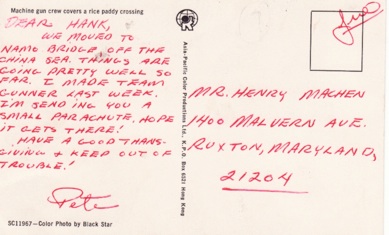 Machine gun crew covers a rice paddy crossing
DEAR HANK,
WE MOVED TO
NAMO BRIDGE, OFF THE
CHINA SEA. THINGS ARE
GOING PRETTY WELL SO
FAR. I MADE TEAM
GUNNER LAST WEEK.
I'M SENDING YOU A
SMALL PARACHUTE. HOPE
IT GETS THERE!
HAVE A GOOD THANS-
GIVING & KEEP OUT OF
TROUBLE!
Pete
SC11967—Color Photo by Black Star
Asia-Pacific Color Productions Ltd., K.P.O. Box 6521 Hong Kong
Free
MR. HENRY MACHEN
1400 MALVERN AVE.
RUXTON, MARYLAND,
21204